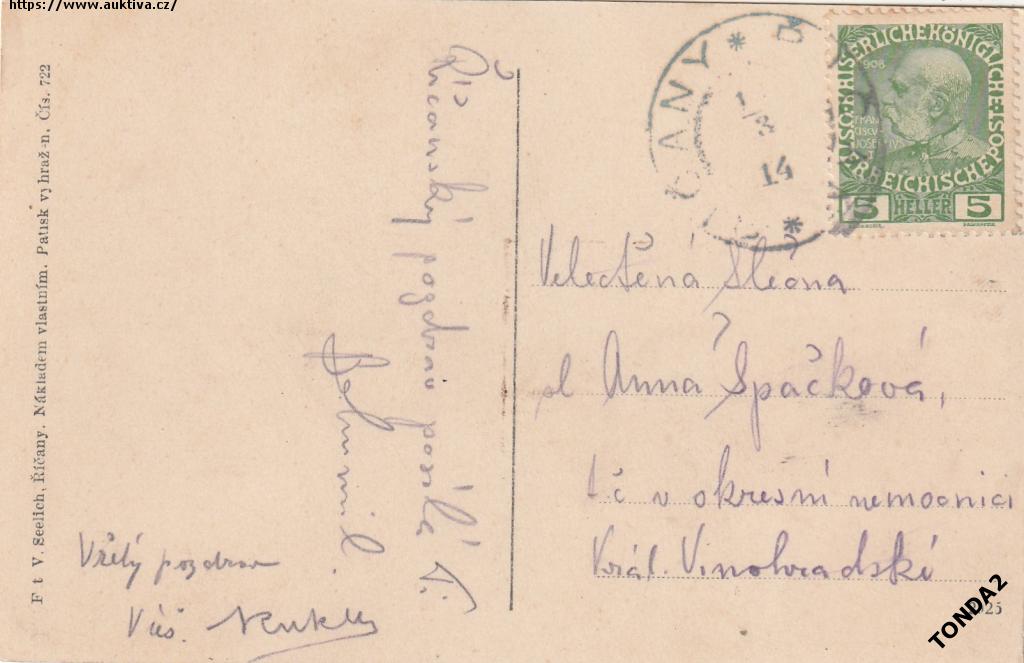 https://www.auktiva.cz/
F t V. Seelich, Říčany. Nákladem vlastním. Patisk vyhraž-n. Čís. 722
Říčanský pozdrav posílá Ti
Bohumil.
Vřelý pozdrav
Váš.
ŘÍČANY * 
1/3
14
*
KAISERLICHE KÖNIGLICHE ÖSTERREICHISCHE POST
1908
5 HELLER 5
Velectěná Slečna
sl Anna Špačková,
t č v okresní nemocnici
Král. Vinohradské
TONDA2